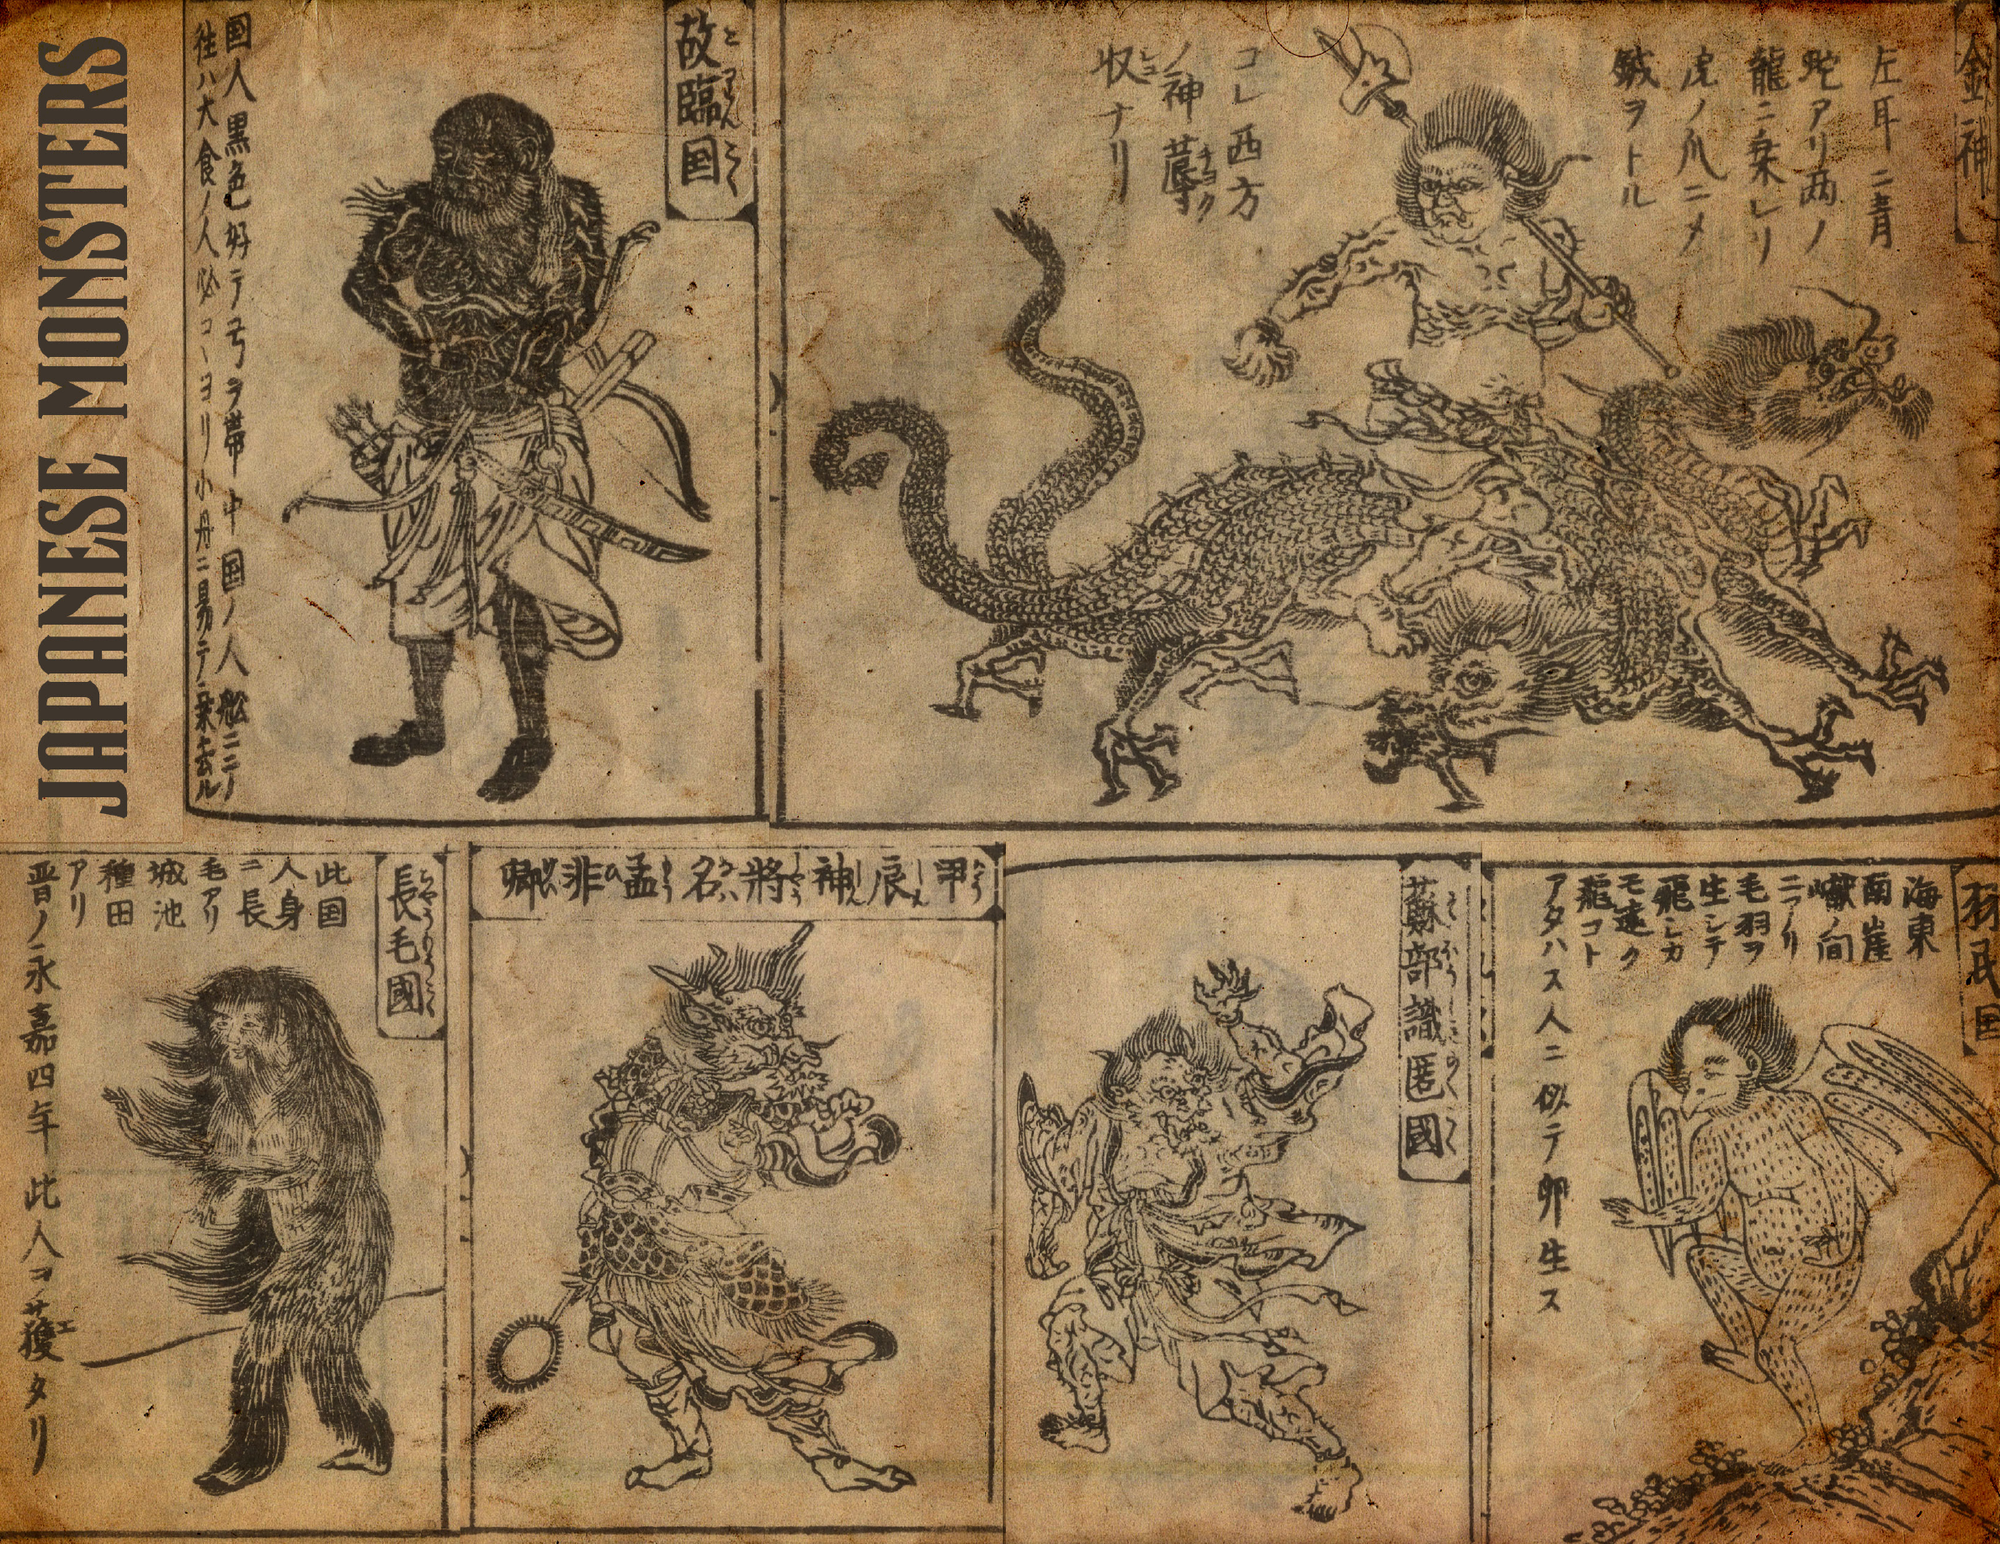 JAPANESE MONSTERS
故臨国
国人黒色好テ弓ヲ帯中国ノ人舩ニニノ
往ハ大食ノ人必コヽヨリ小舟ニ易テ乗去ル
金神
左耳ニ青
蛇アリ両ノ
龍ニ乗レリ
虎ノ爪ニメ
鉞ヲトル
コレ西方
ノ神蓐
収ナリ
長毛國
此国
人身
ニ長
毛アリ
城池
種田
アリ
晋ノ永嘉四年此人コヲ獲タリ
甲辰神將名孟非卿
蘇部識匿國
羽民国
海東
南崖
巘ノ間
ニアリ
毛羽ヲ
生シテ
飛シカ
モ遠ク
飛コト
アタハス人ニ似テ卵生ス